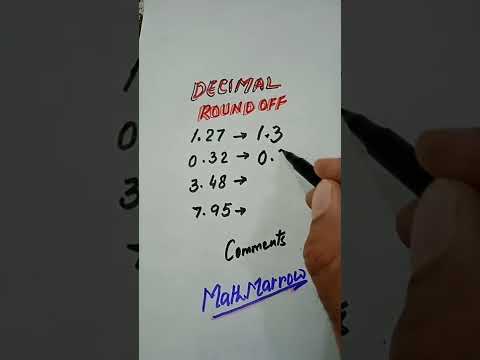 DECIMAL
ROUND OFF
1.27 → 1.3
0.32 → 0.
3.48 →
7.95 →
Comments
Math.Marrow